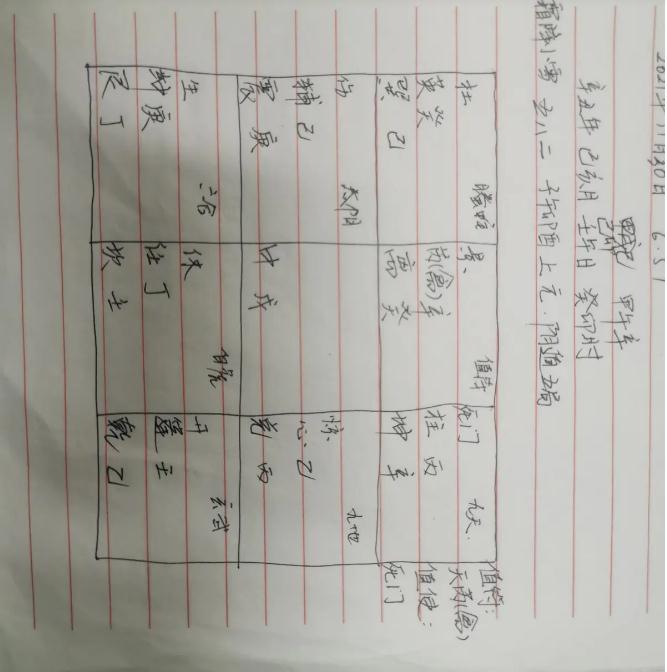 2021年11月30日 6:51
甲午辛
辛丑年 己亥月 壬午日 癸卯时
霜降小雪 五八二 子午卯酉上元 阴遁五局
杜 螣蛇
英癸
巽 己
景 值符
芮(禽)辛
离 癸
死门 九天
柱 丙
坤 辛
值符:
天芮(禽)
值使:
死门
伤 太阴
辅己
震 庚
中 戊
惊 九地
心乙
兑 丙
生 六合
冲庚
艮 丁
休 白虎
任丁
坎 壬
开 玄武
蓬壬
乾 乙